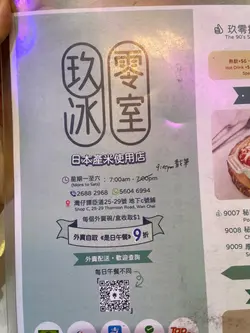 玖零
冰室
日本產米使用店
星期一至六 : 7:00am - 7:00pm
(Mons to Sats)
2688 2968 5604 6994
灣仔譚臣道25-29號 地下c號舖
Shop C, 25-29 Thomson Road, Wan Chai
每個外賣碗/盒收取$1
外賣自取 《是日午餐》 9折
外賣配送,歡迎查詢
每日午餐不同
玖零
The 90's S
9007 秘
9008 秘
9009